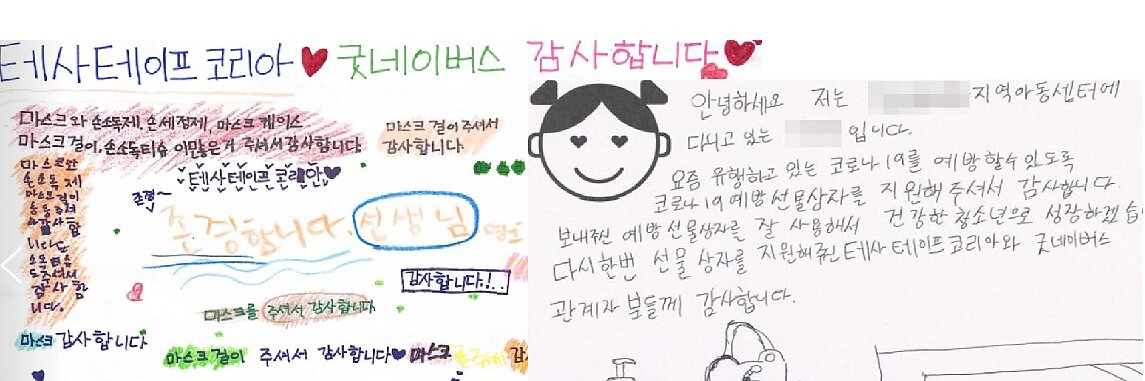 테사테이프 코리아 ♥ 굿네이버스 감사합니다 ♥
마스크와 손소독제, 손세정제, 마스크 케이스
마스크 걸이, 손소독티슈 이많은거 주셔서 감사합니다
마스크 걸이 주셔서
감사합니다.
마스크란
손소독제
마스크걸이
등을 주셔
서 감사합
니다
도 주셔서
감사합
니다.
테사테이프 코리아♥
존경~
존경합니다. 선생님
감사합니다!..
마스크를 주셔서 감사합니다
마스크 감사합니다
마스크걸이 주셔서 감사합니다♥ 마스크
안녕하세요 저는 지역아동센터에
다니고 있는 입니다.
요즘 유행하고 있는 코로나19를 예방할수 있도록
코로나19 예방 선물상자를 지원해 주셔서 감사합니다.
보내주신 예방 선물상자를 잘 사용해서 건강한 청소년으로 성장하겠습
다시한번 선물 상자를 지원해주신 테사 테이프 코리아와 굿네이버스
관계자 분들께 감사합니다.